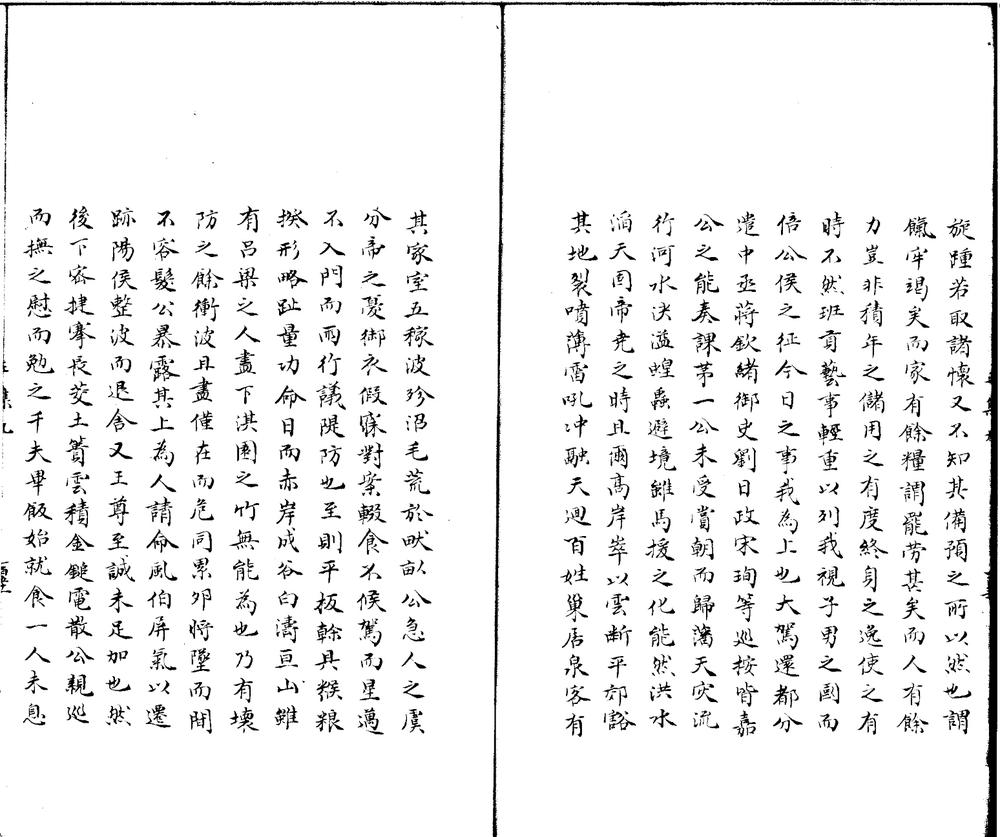 旋踵若取諸懷又不知其備預之所以然也謂
餼牢竭矣而家有餘糧謂罷勞甚矣而人有餘
力豈非積年之儲用之有度終身之逸使之有
時不然班貢藝事輕重以列我視子男之國而
倍公侯之征今日之事我為上也大駕還都分
遣中丞蔣欽緒御史劉日政宋珣等巡按皆嘉
公之能奏課茅一公未受賞朝而歸藩天灾流
行河水决溢蝗蟲避境雖馬援之化能然洪水
滔天固帝堯之時且爾髙岸崒以雲斷平郊豁
其地裂噴薄雷吼冲融天迴百姓巢居泉客有
其家室五稼波殄沼毛荒於畎畝公急人之虞
分帝之憂御衣假寐對案輟食不候駕而星邁
不入門而雨行議隄防也至則平板榦具糇粮
揆形略趾量功命日而赤岸成谷白濤亘山雖
有呂梁之人盡下淇園之竹無能為也乃有壞
防之餘衝波且盡僅在而危同累卵將墜而閒
不容髮公暴露其上為人請命風伯屏氣以遷
跡陽侯整波而退舍又王尊至誠未足加也然
後下密揵搴長茭土簣雲積金鎚電散公親巡
而撫之慰而勉之千夫畢飯始就食一人未息